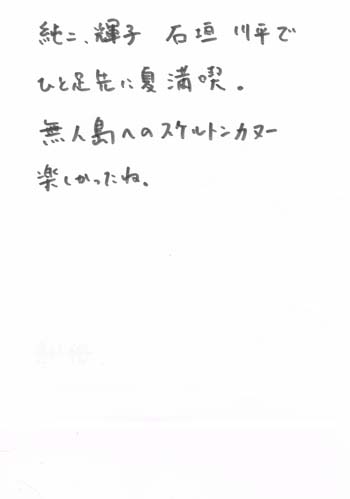 純二、輝子 石垣 川平で
ひと足先に夏満喫。
無人島へのスケルトンカヌー
楽しかったね。